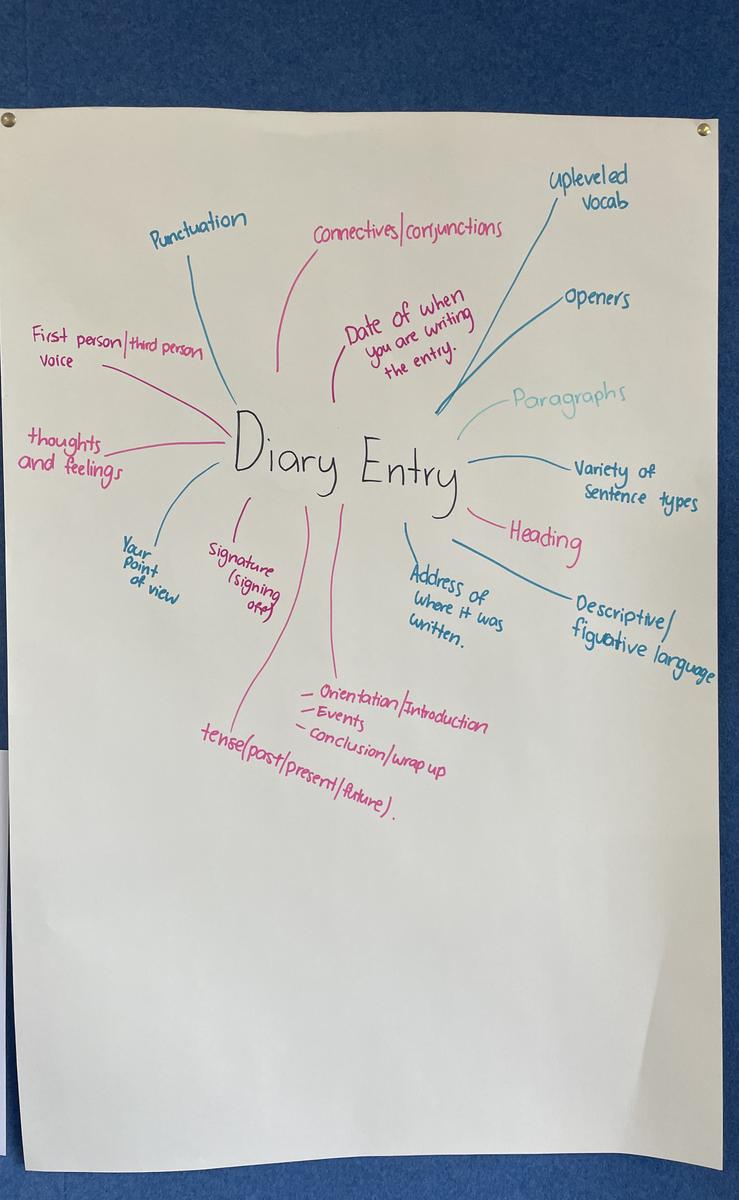 upleveled
vocab
Punctuation
Connectives/conjunctions
Openers
Date of when
you are writing
the entry.
First person/third person
voice
Paragraphs
Diary Entry
thoughts
and feelings
Variety of
Sentence types
Heading
Your
Point
of view
Signature
(signing
off)
Address of
where it was
written.
Descriptive/
figuative language
- Orientation/Introduction
- Events
- conclusion/wrap up
tense(past/present/future).